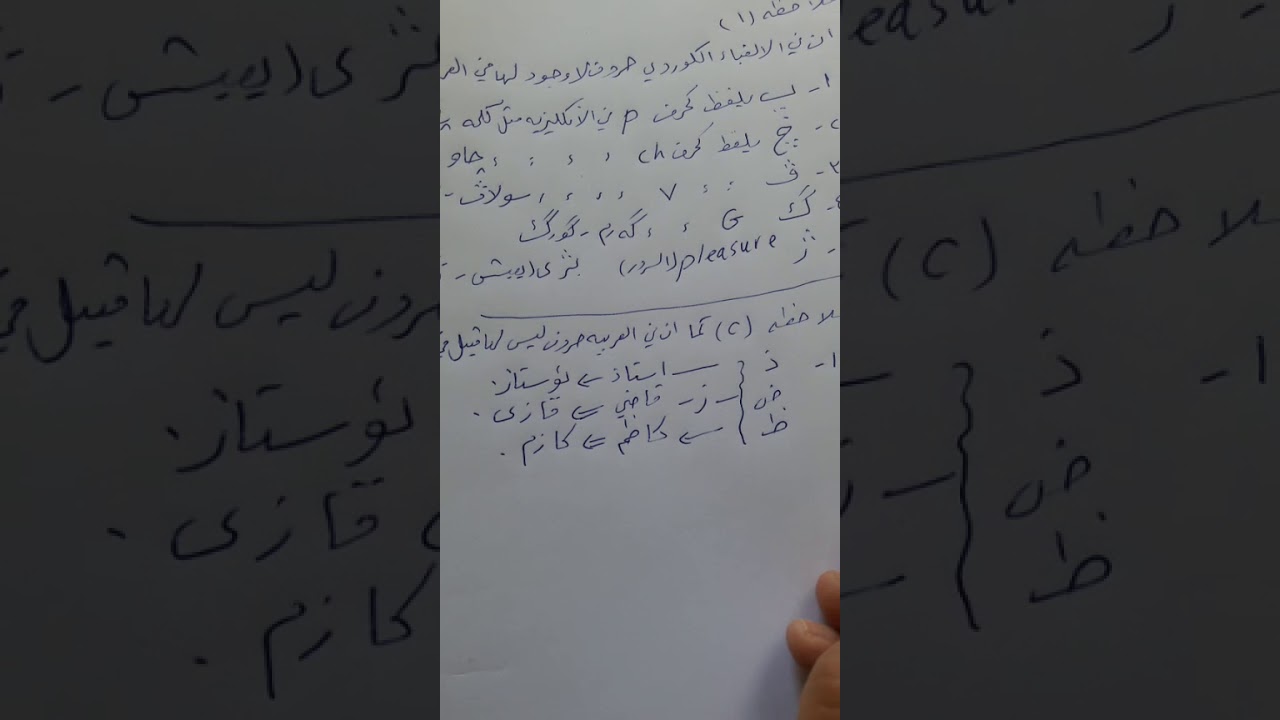 ملاحظه (١)
ان في الالفباء الكوردي حروف لا وجود لها في العر
١- پ يلفظ كحرف p في الانكليزيه مثل كلمه
٢- چ يلفظ كحرف ch ، ، ، ، چاو
٣- ڤ ، ، v ، ، ، ، سولاڤ -
٤- گ G ، ، گەرم - گورگ
- ژ pleasure (السرور) ژى (يعيش -
ملاحظه (٢) كما ان في العربيه حروف ليس لها قبيل في
١- ذ — استاذ ⇐ ئوستاز.
ض - ز - قاضي ⇐ قازى.
ظ ← كاظم ⇐ كازم.